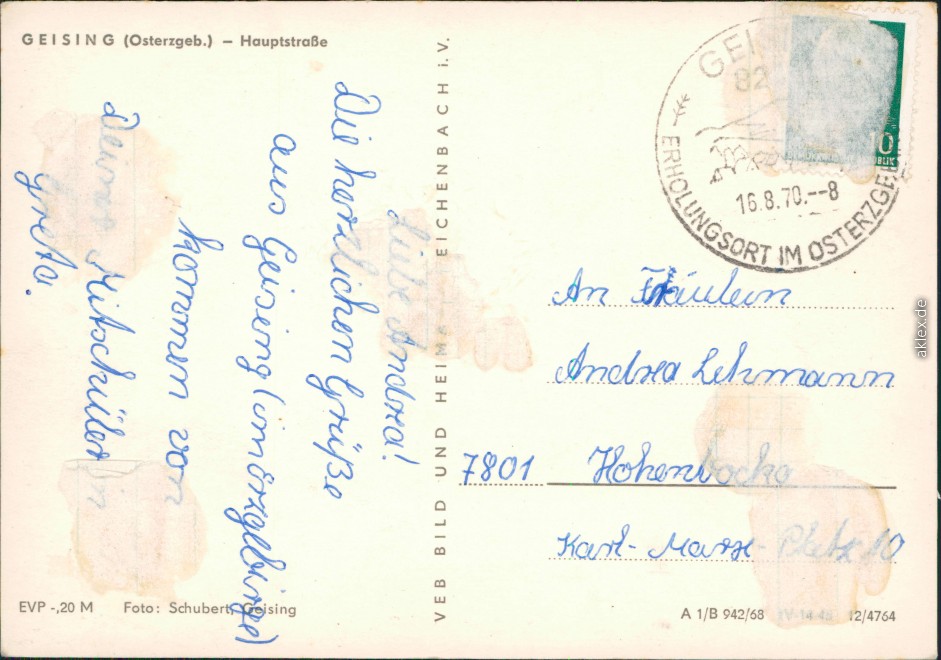 GEISING (Osterzgeb.) – Hauptstraße
Liebe Andrea!
Die herzlichen Grüße
aus Geising (im Erzgebirge)
kommen von
Deiner Mitschülerin
Greta.
EVP -,20 M Foto: Schubert, Geising
VEB BILD UND HEIMA EICHENBACH i. V.
GEI
82
16.8.70.--8
ERHOLUNGSORT IM OSTERZGE
10
BLIK
An Fräulein
Andrea Lehmann
7801 Hohenbocka
Karl-Marx-Platz 10
A 1/B 942/68 IV-14-45 12/4764
aklex.de